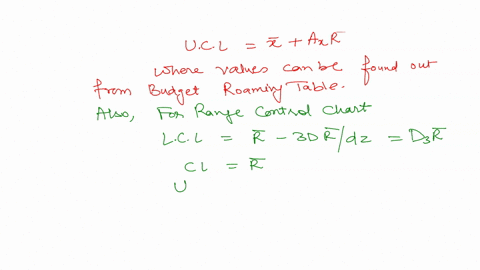 U.C.L = x̿ + AₓR̅
where values can be found out
from Budget Roaming Table.
Also, For Range Control Chart
L.C.L = R̅ - 3D R̅/d2 = D₃R̅
CL = R̅
U